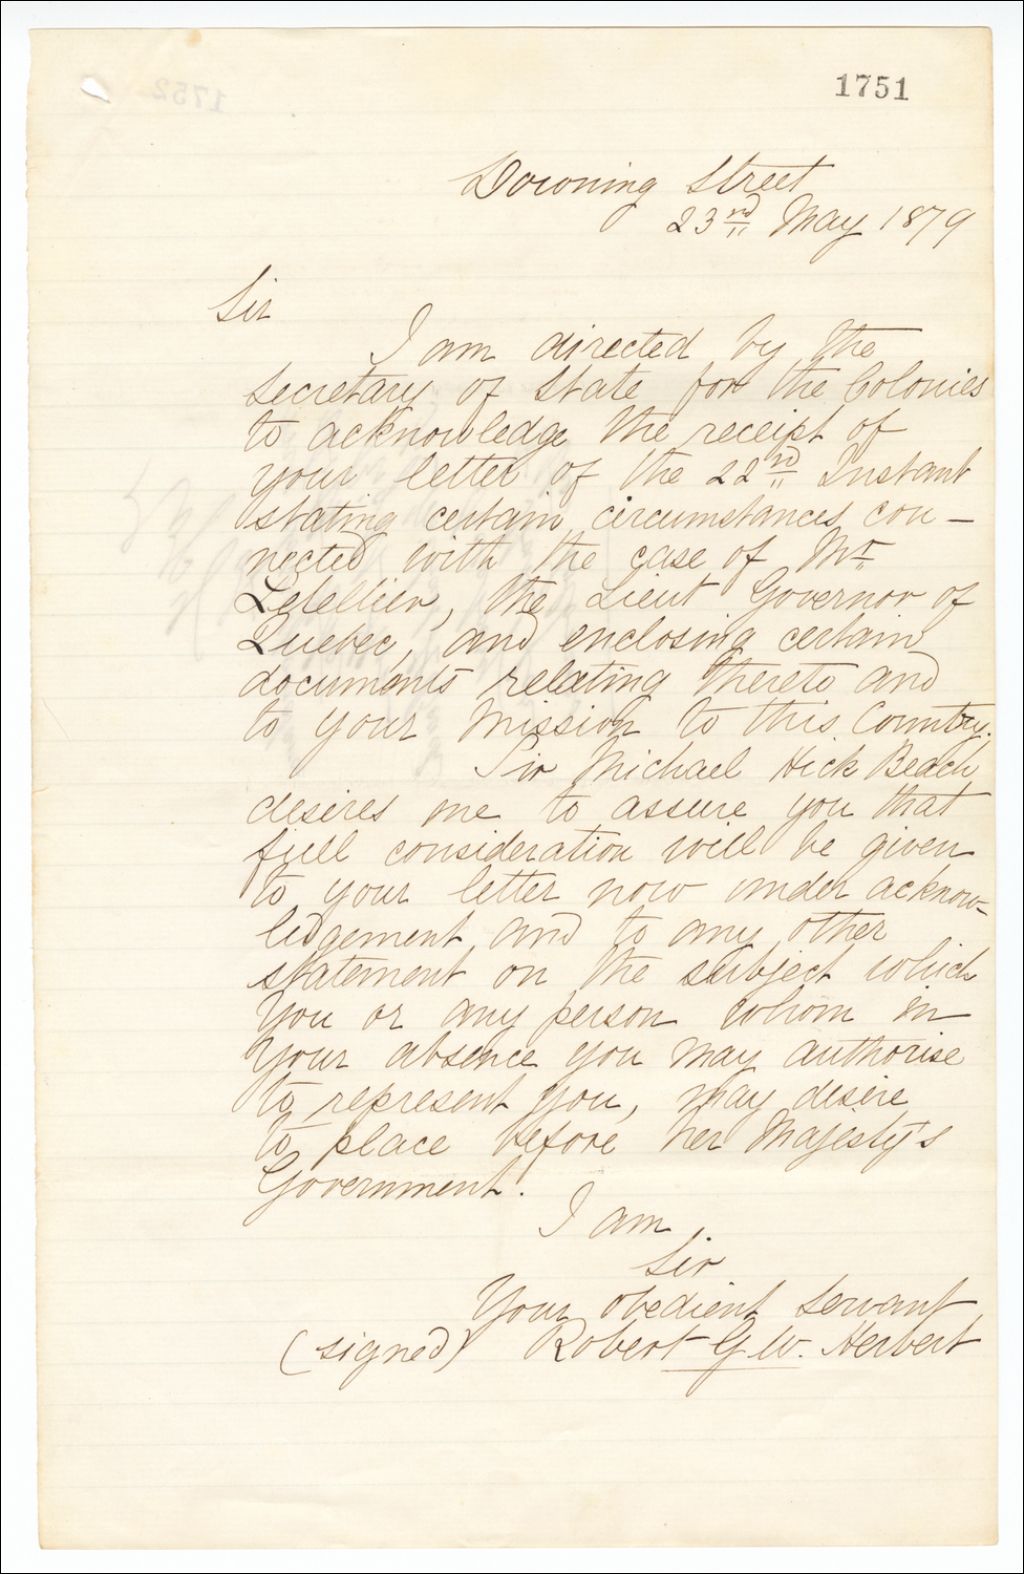 1751
1752
Downing Street
23rd May 1879
Sir
I am directed by the
Secretary of State for the Colonies
to acknowledge the receipt of
your letter of the 22nd Instant
stating certain circumstances con-
nected with the case of Mr.
Letellier, the Lieut Governor of
Quebec, and enclosing certain
documents relating thereto and
to your Mission to this Country.
Sir Michael Hick Beach
desires me to assure you that
full consideration will be given
to your letter now under acknow-
ledgement and to any other
statement on the subject which
you or any person whom in
your absence you may authorise
to represent you, may desire
to place before her Majesty's
Government.
I am
Sir
Your obedient Servant
(signed) Robert G. W. Herbert